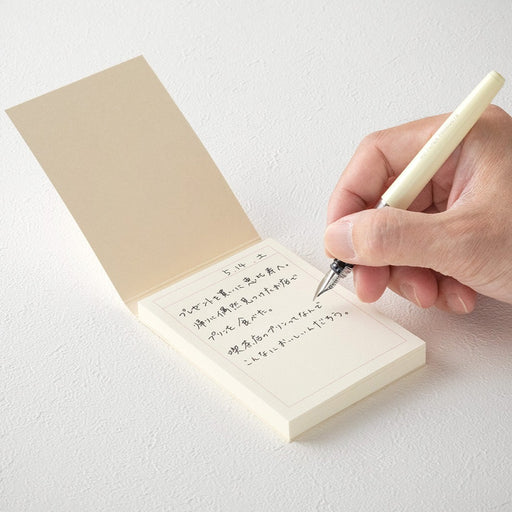 5.14.土
プレゼントを買いに恵比寿へ。
帰りに偶然見つけたお店で
プリンを食べた。
喫茶店のプリンってなんで
こんなにおいしいんだろう。